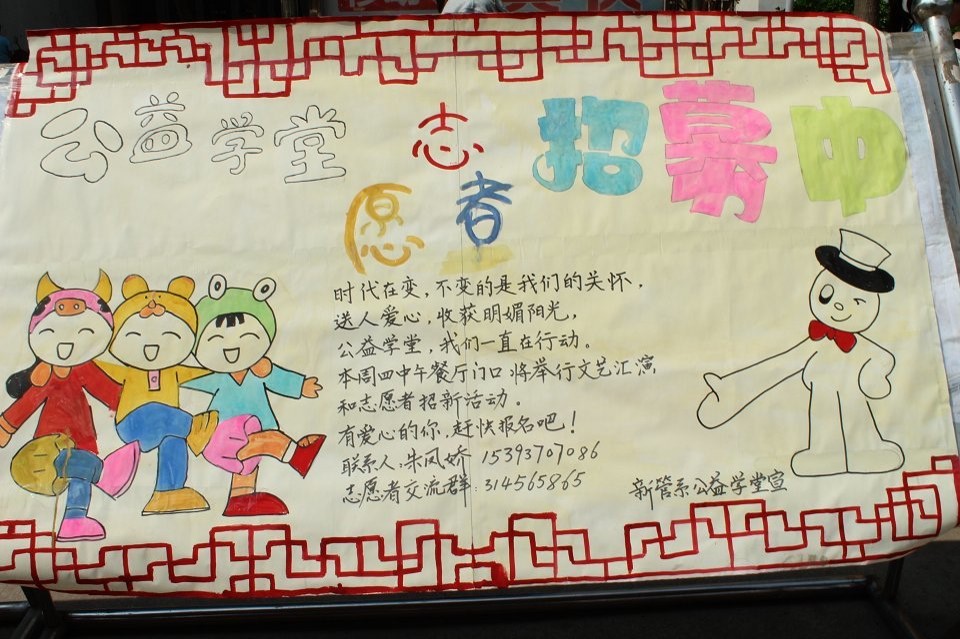 公益学堂
志愿者
招募中
时代在变，不变的是我们的关怀，
送人爱心，收获明媚阳光，
公益学堂，我们一直在行动。
本周四中午餐厅门口将举行文艺汇演
和志愿者招新活动。
有爱心的你，赶快报名吧！
联系人：朱凤娇 15393707086
志愿者交流群：314565865
新管系公益学堂宣